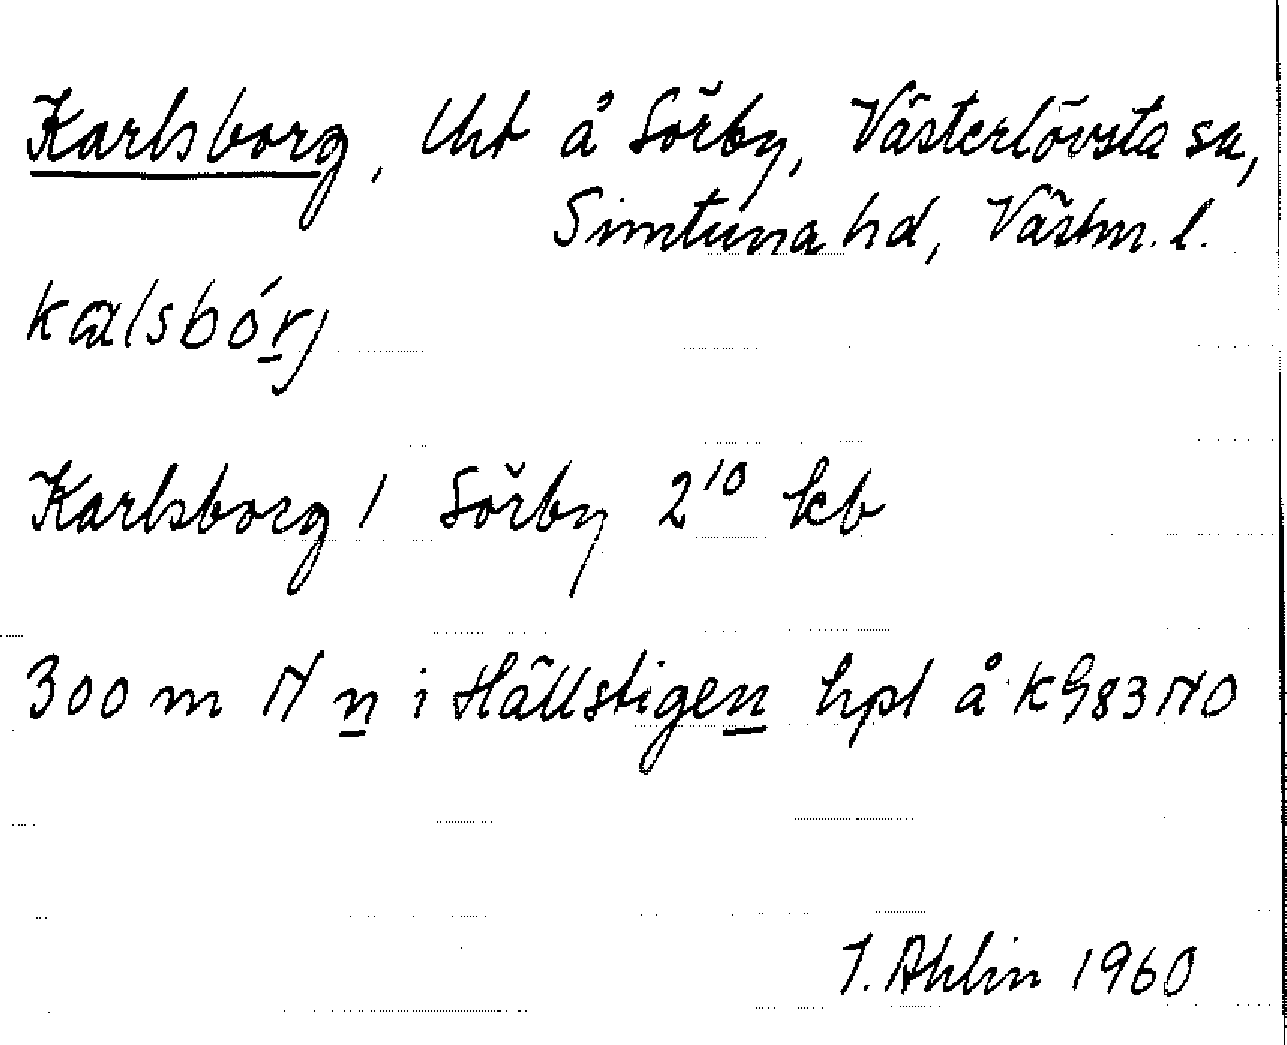 Karlsborg, lht å Sörby, Västerlövsta sn,
Simtuna hd, Västm. l.
kalsbórj
Karlsborg / Sörby 2¹⁰ kb
300 m N n i Hällstigen hpl å K983NO
T. Ahlin 1960